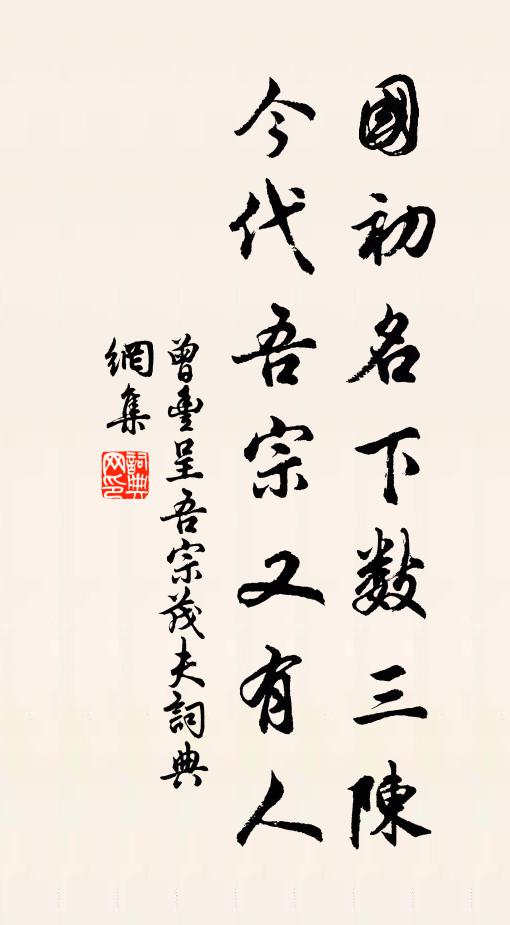 國初名下数三陳
今代吾宗又有人
曾豐呈吾宗茂夫詞典
網集
詞典网印